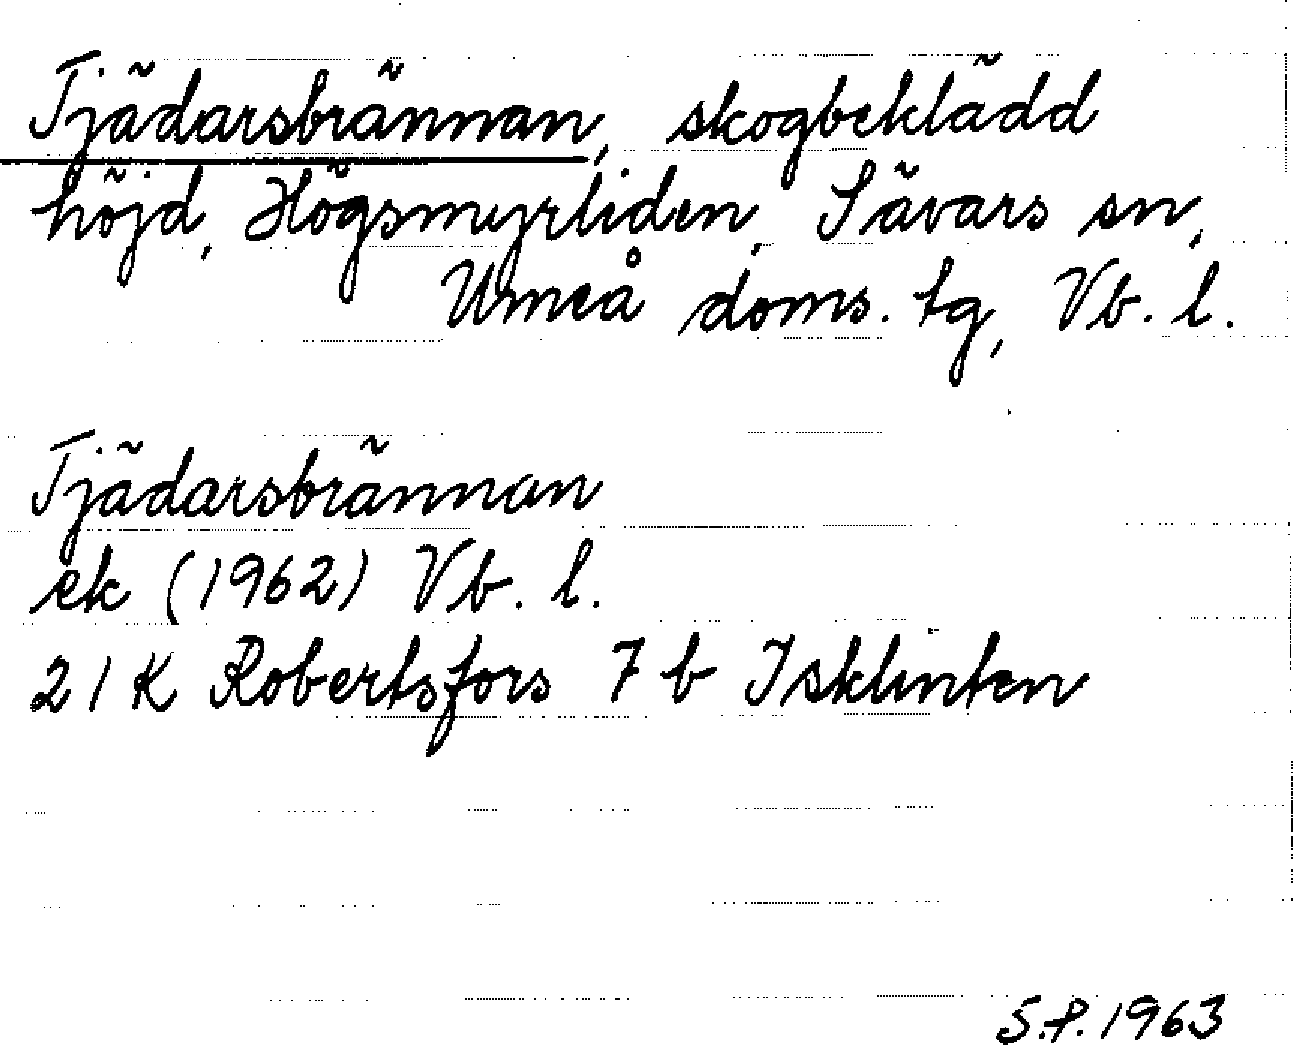 Tjädarsbrännan, skogbeklädd
höjd, Högsmyrliden, Sävars sn,
Umeå doms. tg, Vb. l.
Tjädarsbrännan
ek (1962) Vb. l.
21 K Robertsfors 7 b Isklinten
S.P. 1963